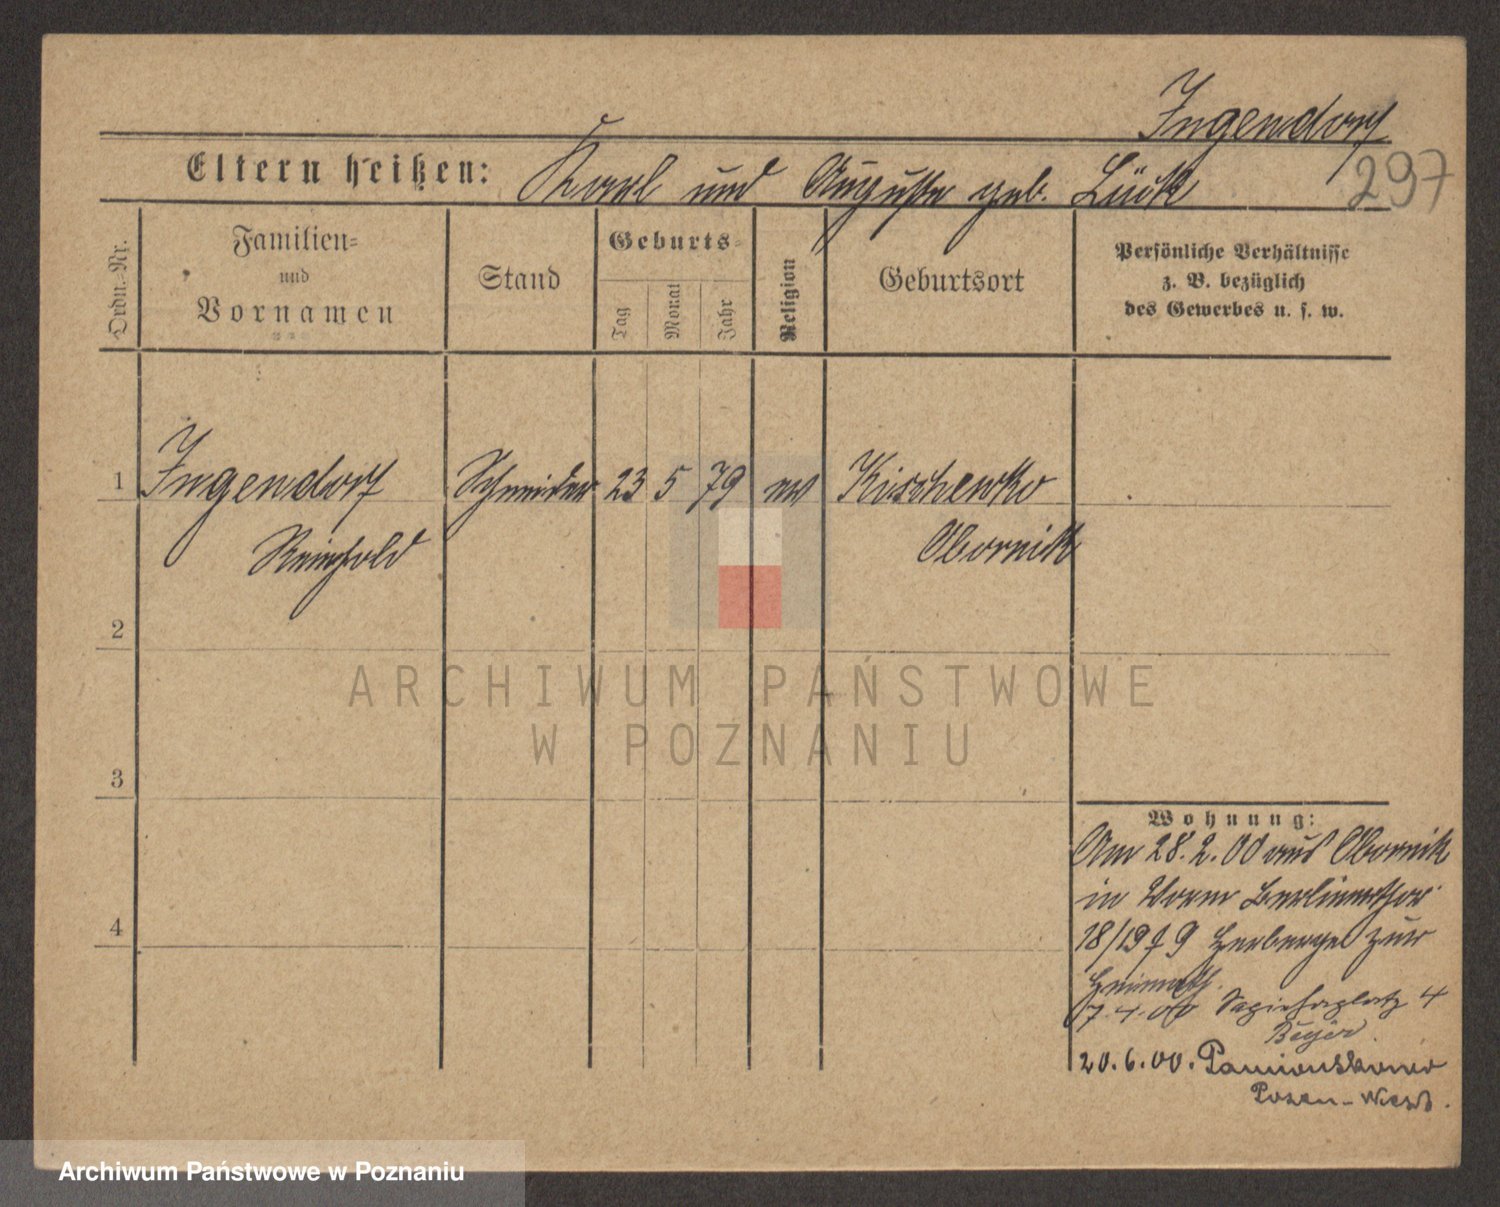 Ingendorf
297
Eltern heißen: Karl und Auguste geb. Lück
Ordn.-Nr.
Familien-
und
Vornamen
Stand
Geburts-
Tag
Monat
Jahr
Religion
Geburtsort
Persönliche Verhältnisse
z. B. bezüglich
des Gewerbes u. s. w.
1 Ingendorf Schneider 23 5 79 ev Kischewko
Reinhold Obornik
2
ARCHIWUM PAŃSTWOWE
W POZNANIU
3
Wohnung:
Am 28.2.00 aus Obornik
in Berlinerthor
4
18/19 Herberge zur
Heimath.
7.4.00 Sapiehaplatz 4
Beyer
20.6.00.
Posen-West.
Archiwum Państwowe w Poznaniu